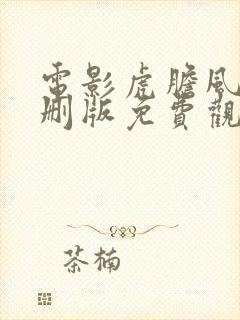 電影虎膽風
刪版免費觀
茶楠